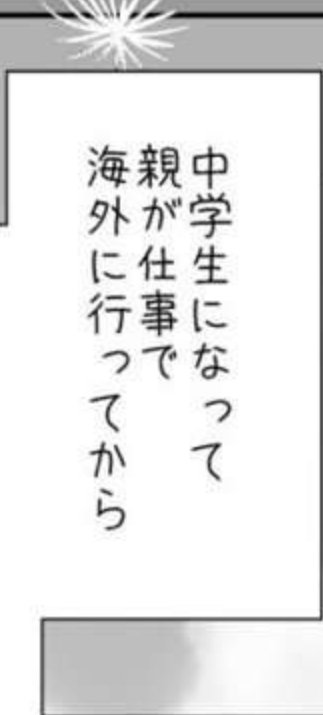 中学生になって
親が仕事で
海外に行ってから